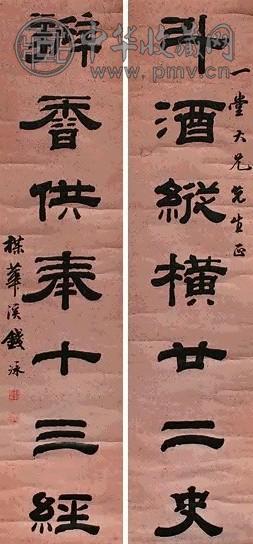 中华收藏网
www.pmv.cn
一堂大兄先生正
斗酒縱橫廿二史
瓣香供奉十三經
楳華溪錢泳